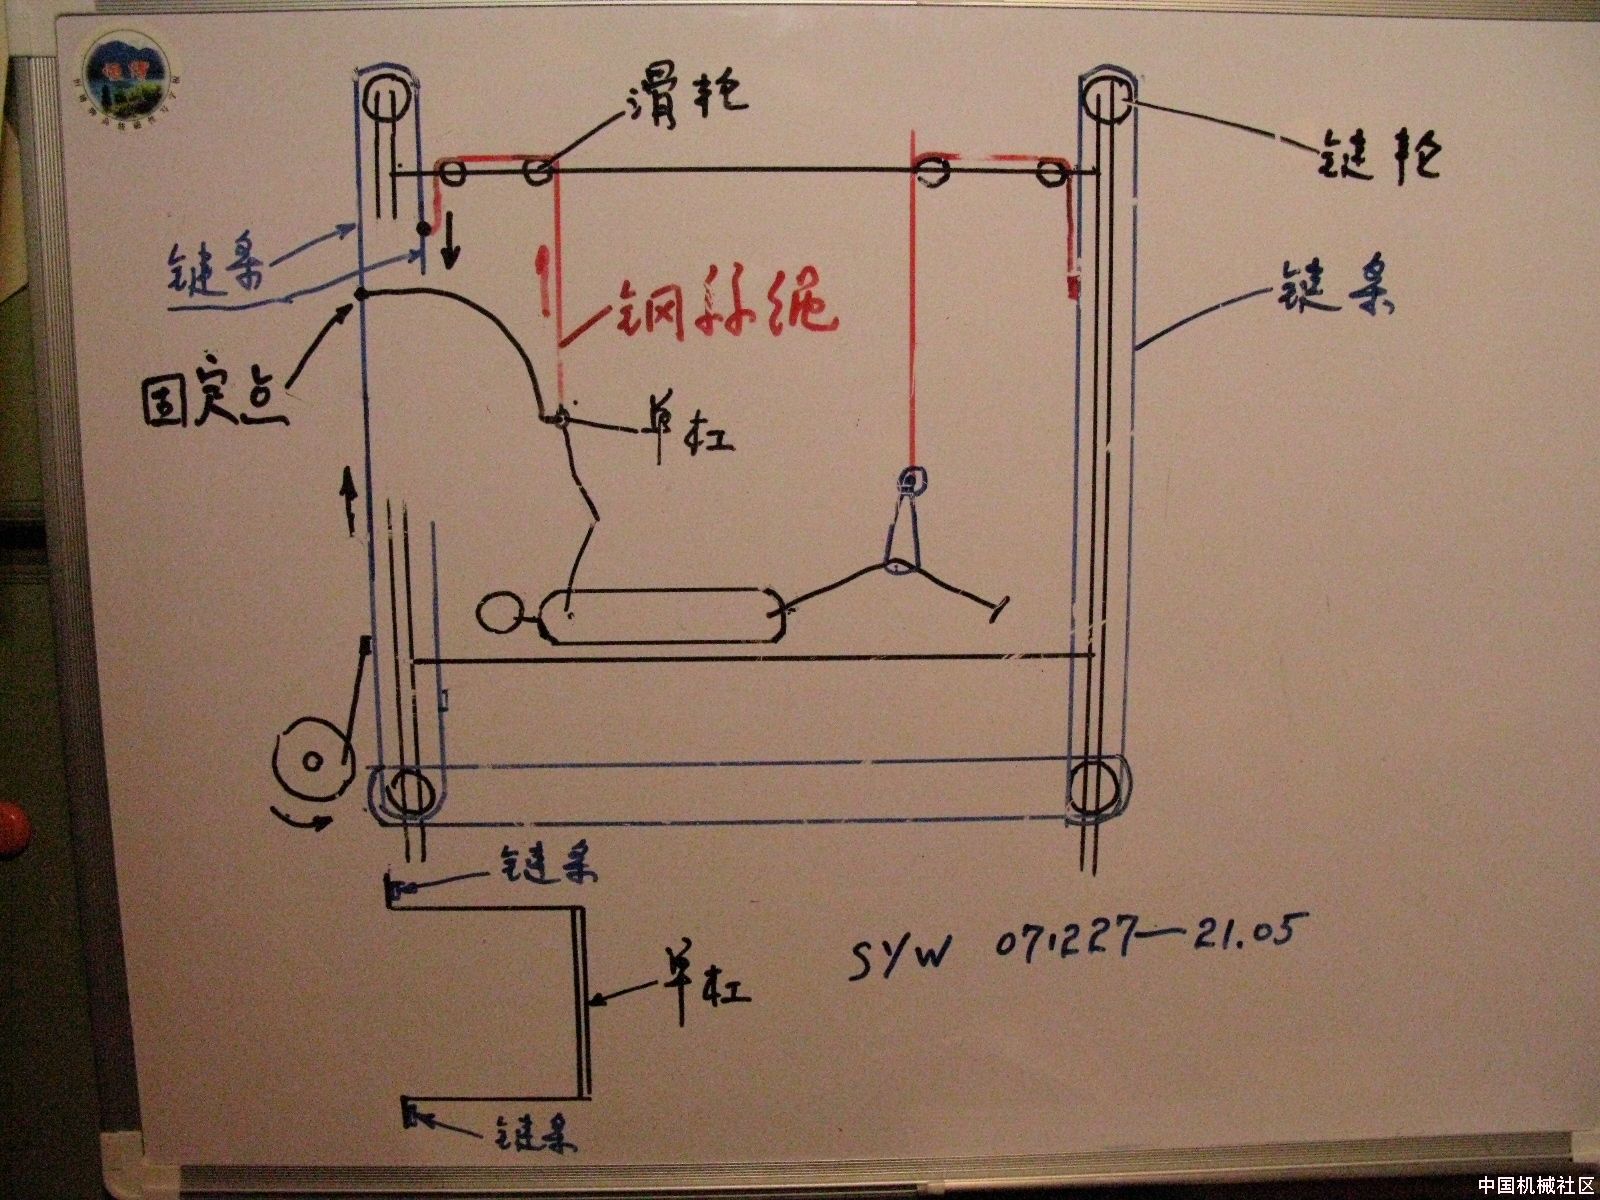 滑轮
键轮
键条
键条
钢丝绳
固定点
单杠
键条
单杠
SYW 071227—21.05
键条
中国机械社区